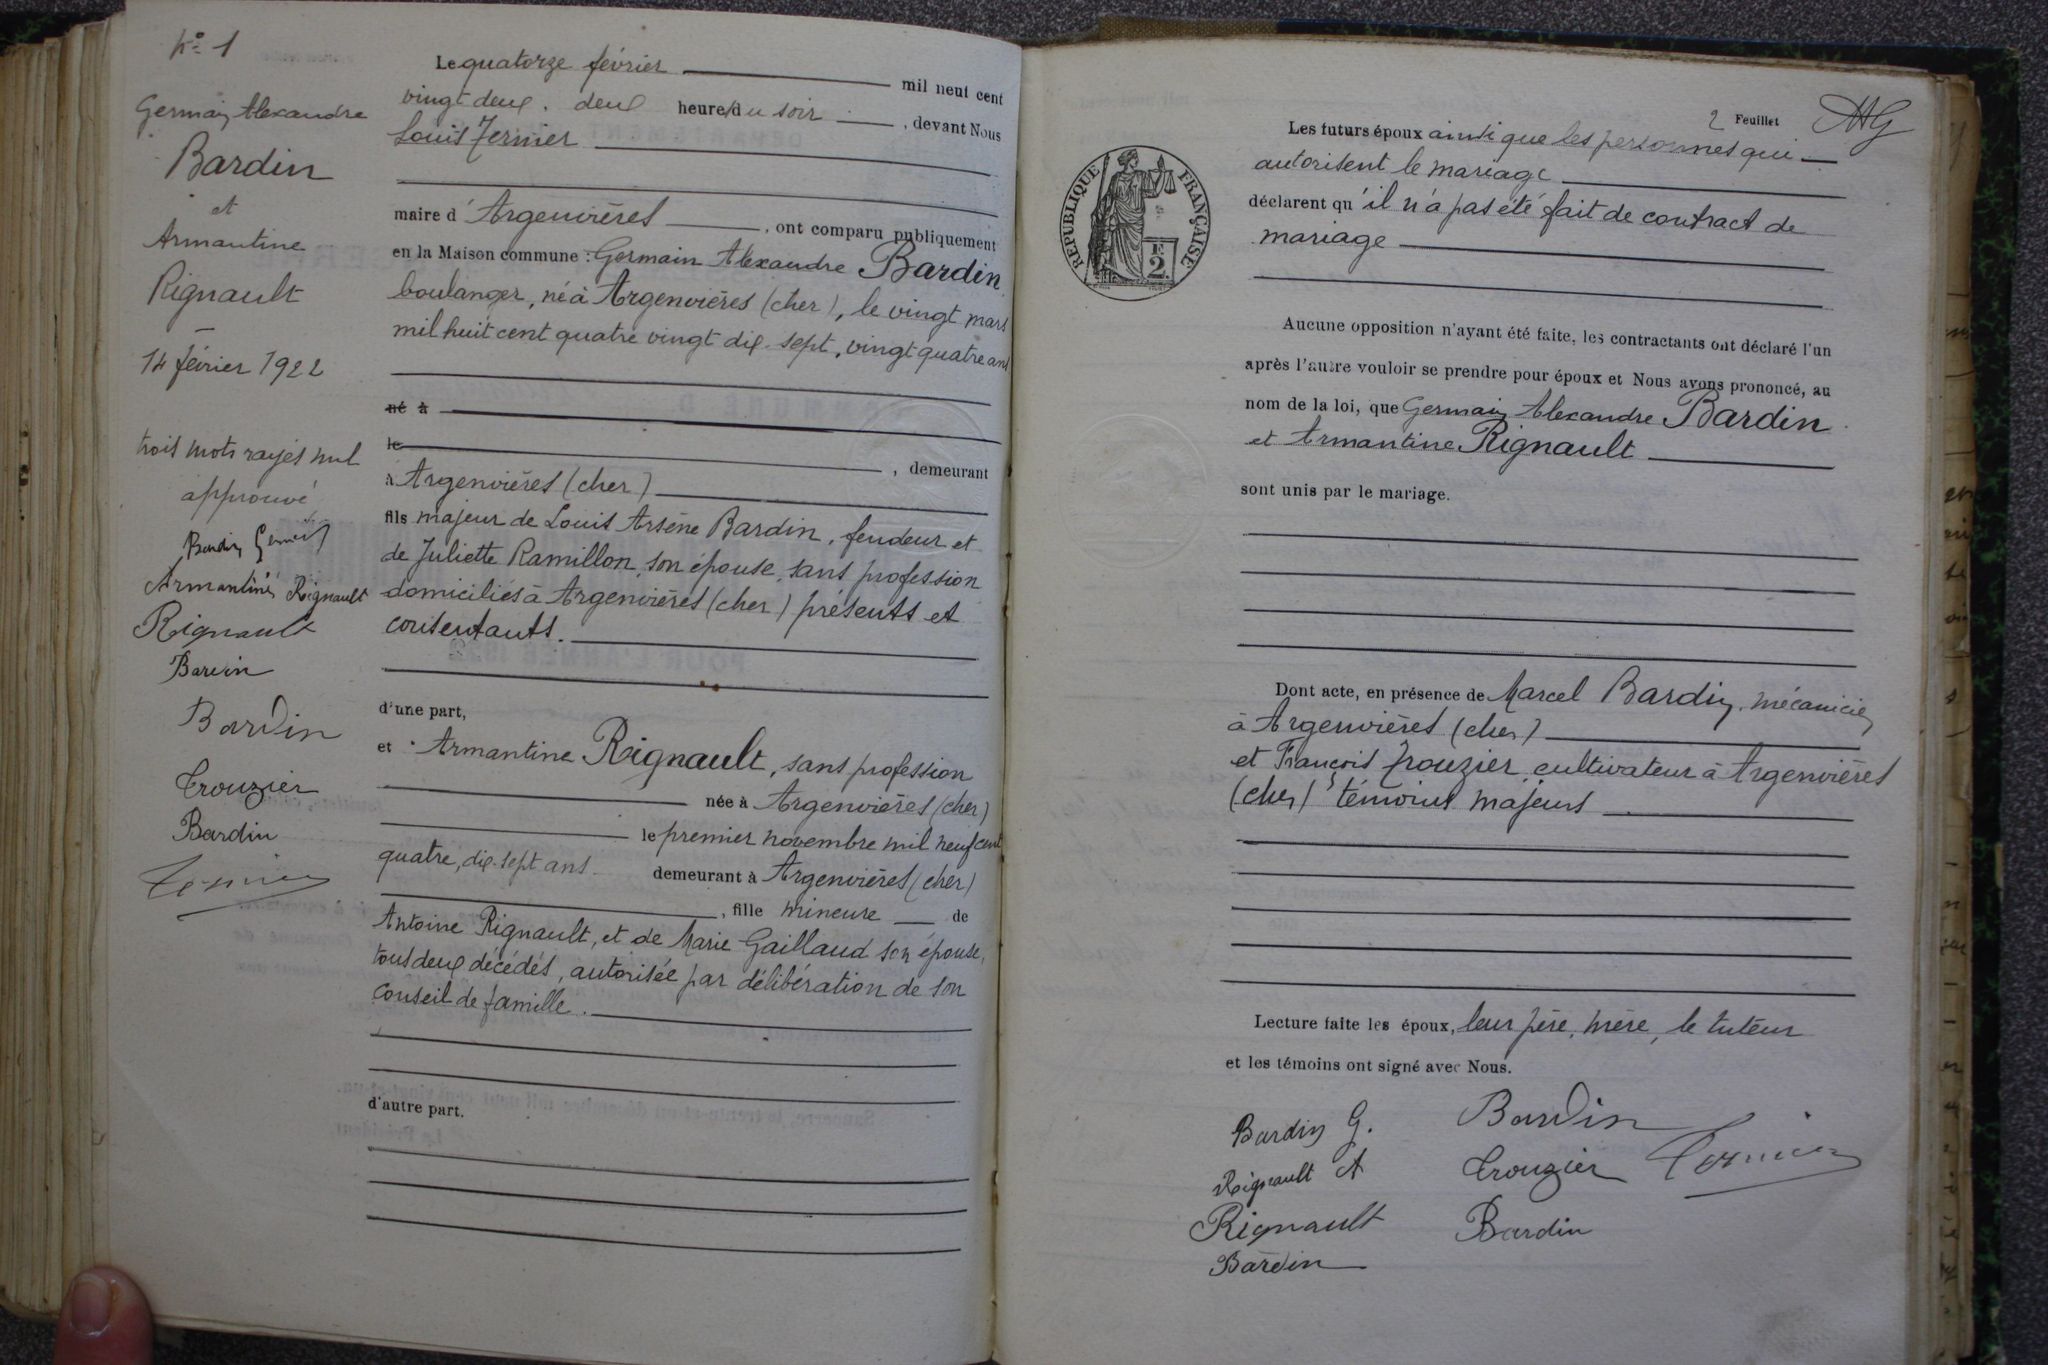 No 1
Germain Alexandre
Bardin
et
Armantine
Rignault
14 février 1922
trois mots rayés nul
approuvé
Bardin Germain
Armantine Rignault
Rignault
Bardin
Bardin
Trouzier
Bardin
Le quatorze février mil neuf cent
vingt deux, deux heures du soir, devant Nous
Louis
maire d'Argenvières, ont comparu publiquement
en la Maison commune : Germain Alexandre Bardin
boulanger, né à Argenvières (cher), le vingt mars
mil huit cent quatre vingt dix-sept, vingt quatre ans
né à
le , demeurant
à Argenvières (cher)
fils majeur de Louis Arsène Bardin, fendeur et
de Juliette Ramillon, son épouse, sans profession
domiciliés à Argenvières (cher) présents et
consentants.
d'une part,
et Armantine Rignault, sans profession
née à Argenvières (cher)
le premier novembre mil neuf cent
quatre, dix-sept ans demeurant à Argenvières (cher)
, fille mineure de
Antoine Rignault, et de Marie Gaillaud son épouse,
tous deux décédés, autorisée par délibération de son
conseil de famille.
d'autre part.
2 Feuillet
Les futurs époux ainsi que les personnes qui
autorisent le mariage
déclarent qu'il n'a pas été fait de contract de
mariage
RÉPUBLIQUE FRANÇAISE
2
Aucune opposition n'ayant été faite, les contractants ont déclaré l'un
après l'autre vouloir se prendre pour époux et Nous avons prononcé, au
nom de la loi, que Germain Alexandre Bardin
et Armantine Rignault
sont unis par le mariage.
Dont acte, en présence de Marcel Bardin, mécanicien
à Argenvières (cher)
et François Trouzier cultivateur à Argenvières
(cher) témoins majeurs
Lecture faite les époux, leur père, mère, le tuteur
et les témoins ont signé avec Nous.
Bardin G.
Bardin
Rignault A
Trouzier
Rignault
Bardin
Bardin